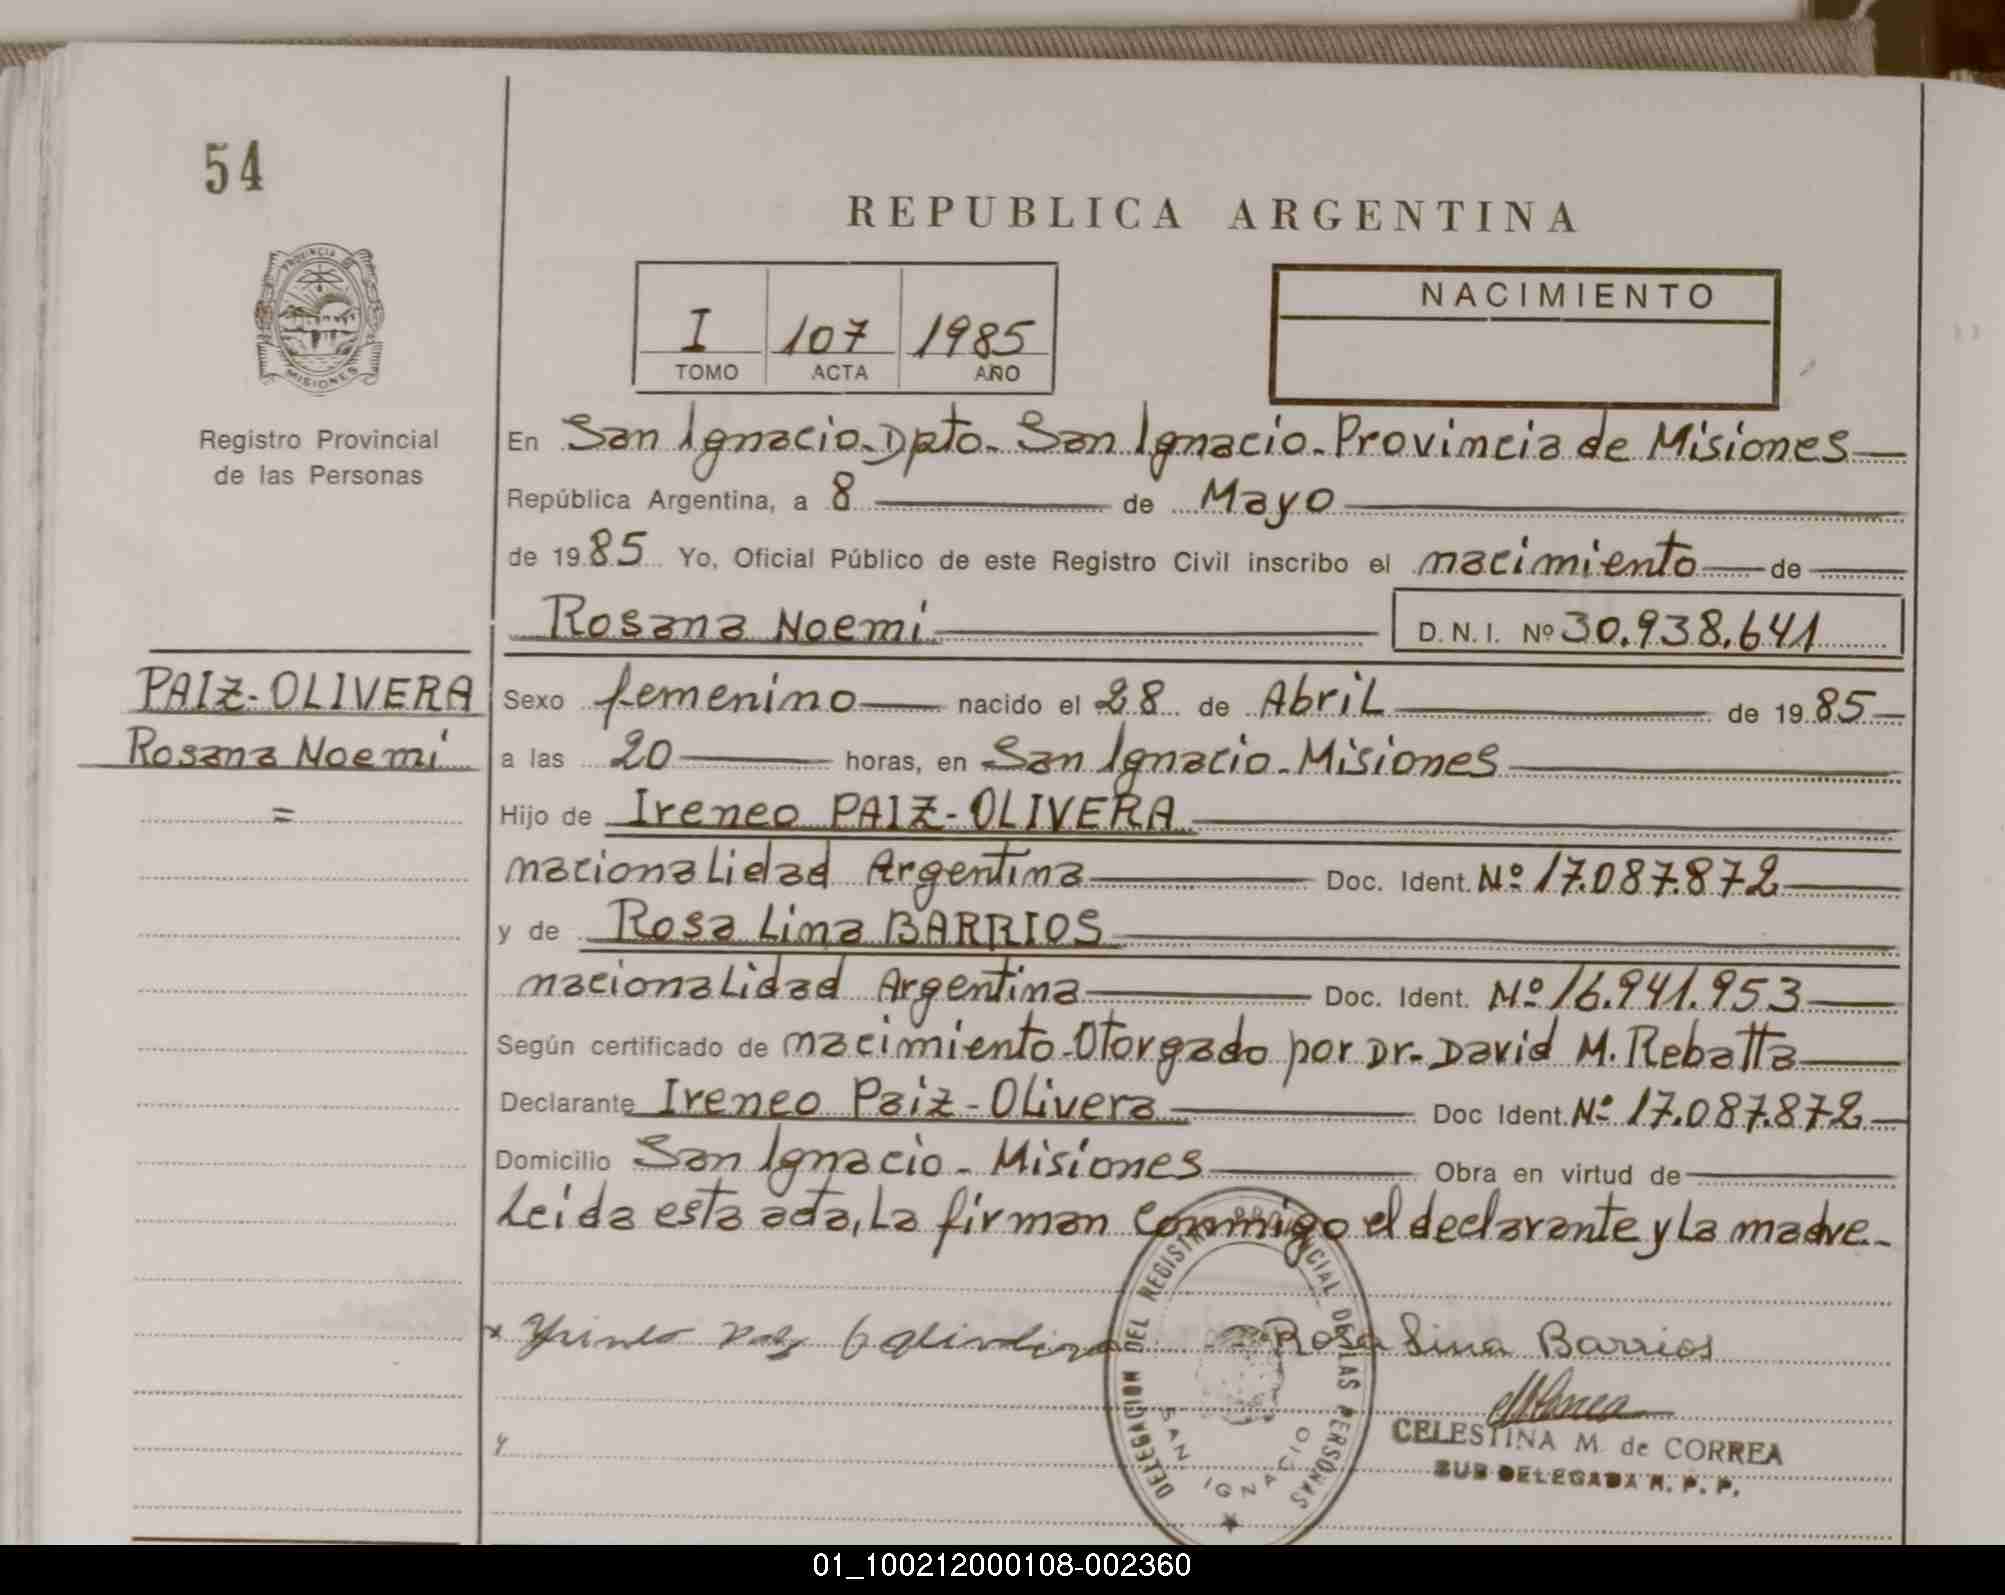 54
REPUBLICA ARGENTINA
PROVINCIA DE
MISIONES
Registro Provincial
de las Personas
I 107 1985
TOMO ACTA AÑO
NACIMIENTO
En San Ignacio-Dpto-San Ignacio-Provincia de Misiones
República Argentina, a 8 de Mayo
de 1985 Yo, Oficial Público de este Registro Civil inscribo el nacimiento de
Rosana Noemí D.N.I. Nº 30.938.641
PAIZ-OLIVERA
Rosana Noemí
=
Sexo femenino nacido el 28 de Abril de 1985
a las 20 horas, en San Ignacio-Misiones
Hijo de Ireneo PAIZ-OLIVERA
nacionalidad Argentina Doc. Ident. Nº 17.087.872
y de Rosa Lina BARRIOS
nacionalidad Argentina Doc. Ident. Nº 16.941.953
Según certificado de nacimiento-Otorgado por Dr-David M. Rebatta
Declarante Ireneo Paiz-Olivera Doc Ident. Nº 17.087.872
Domicilio San Ignacio-Misiones Obra en virtud de
Leída esta acta, la firman conmigo el declarante y la madre-
Rosa Lina Barrios
DELEGACION DEL REGISTRO PROVINCIAL DE LAS PERSONAS
SAN IGNACIO
CELESTINA M. de CORREA
SUB DELEGADA R. P. P.
01_100212000108-002360